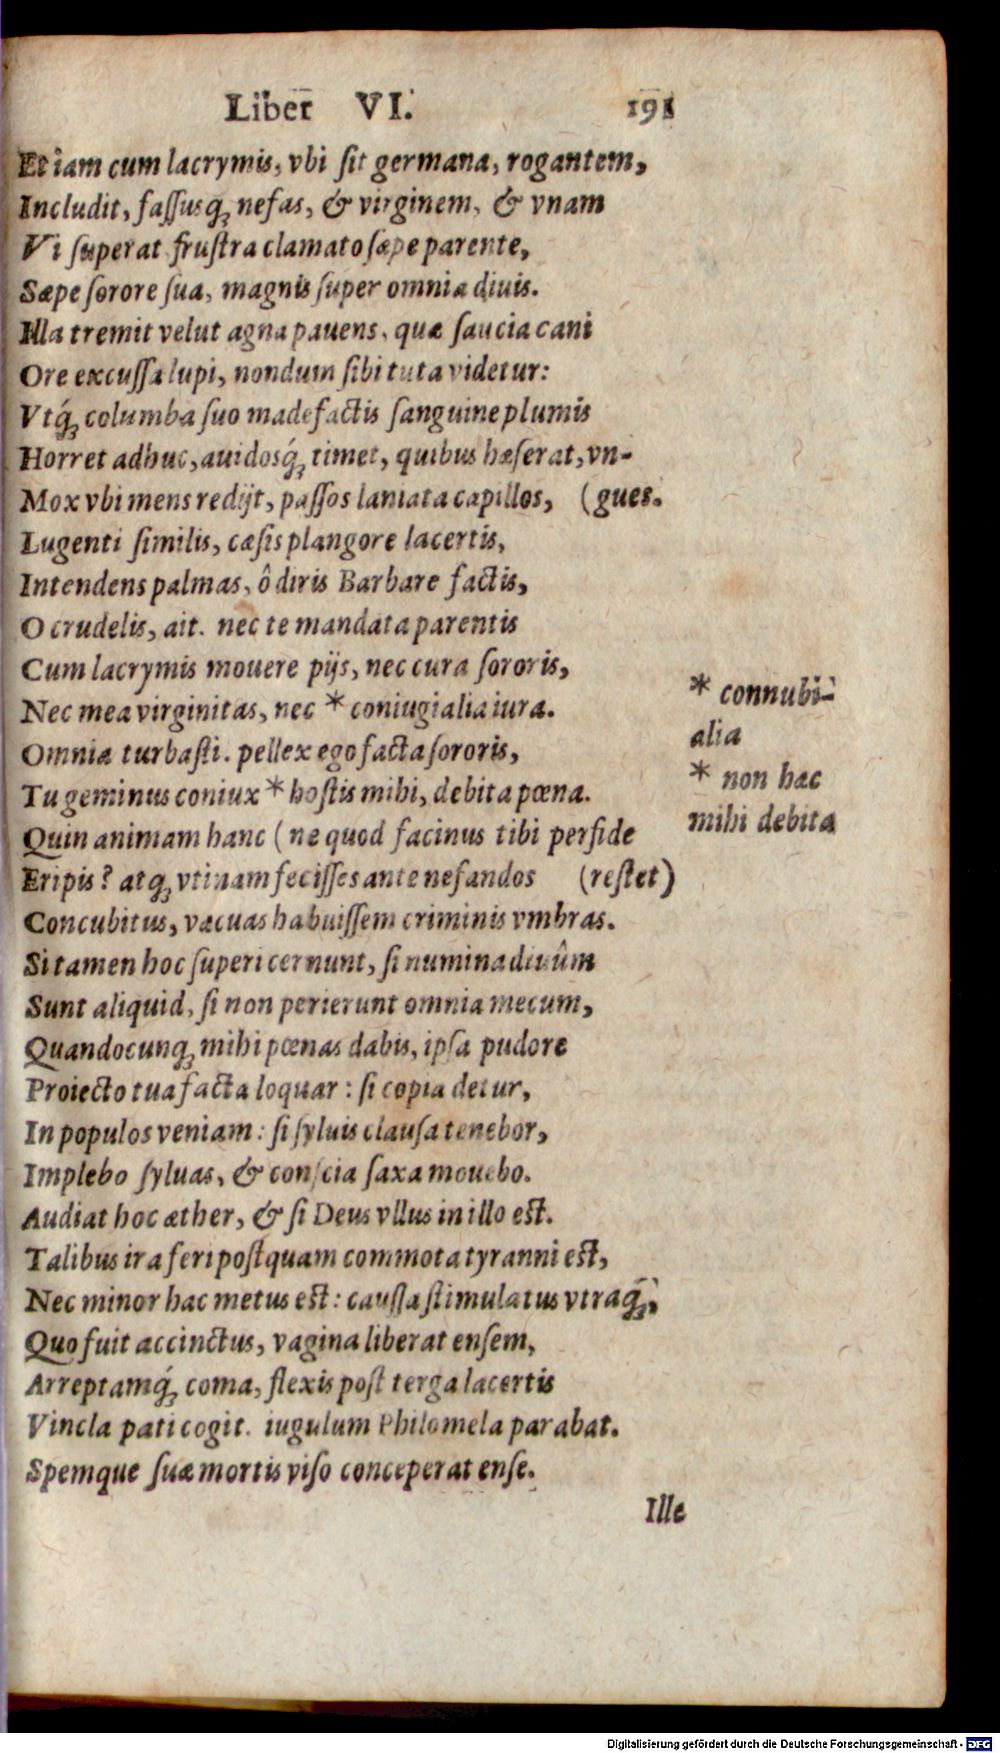 Liber VI. 191
Et iam cum lacrymis, vbi ſit germana, rogantem,
Includit, faſſusq́ꝫ nefas, & virginem, & vnam
Vi ſuperat fruſtra clamato ſæpe parente,
Sæpe ſorore ſua, magnis ſuper omnia diuis.
Illa tremit velut agna pauens, quæ ſaucia cani
Ore excuſſa lupi, nondum ſibi tuta videtur:
Vtq́ꝫ columba ſuo madefactis ſanguine plumis
Horret adhuc, auidosq́ꝫ timet, quibus hæſerat, vn-
Mox vbi mens redijt, paſſos laniata capillos, (gues.
Lugenti ſimilis, cæſis plangore lacertis,
Intendens palmas, ô diris Barbare factis,
O crudelis, ait. nec te mandata parentis
Cum lacrymis mouere pijs, nec cura ſororis,
Nec mea virginitas, nec * coniugialia iura.
Omnia turbaſti. pellex ego facta ſororis,
Tu geminus coniux * hoſtis mihi, debita pœna.
Quin animam hanc (ne quod facinus tibi perfide
Eripis? atqꝫ vtinam feciſſes ante nefandos (reſtet)
Concubitus, vacuas habuiſſem criminis vmbras.
Si tamen hoc ſuperi cernunt, ſi numina diuûm
Sunt aliquid, ſi non perierunt omnia mecum,
Quandocunqꝫ mihi pœnas dabis, ipſa pudore
Proiecto tua facta loquar: ſi copia detur,
In populos veniam: ſi ſyluis clauſa tenebor,
Implebo ſyluas, & conſcia ſaxa mouebo.
Audiat hoc æther, & ſi Deus vllus in illo eſt.
Talibus ira feri poſtquam commota tyranni eſt,
Nec minor hac metus eſt: cauſſa ſtimulatus vtraqꝫ,
Quo fuit accinctus, vagina liberat enſem,
Arreptamq́ꝫ coma, flexis poſt terga lacertis
Vincla pati cogit. iugulum Philomela parabat.
Spemque ſuæ mortis viſo conceperat enſe.
Ille
* connubi-
alia
* non hac
mihi debita
Digitalisierung gefördert durch die Deutsche Forschungsgemeinschaft - DFG